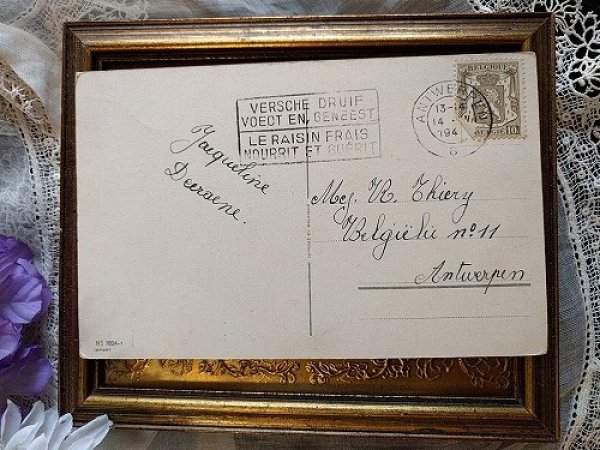 VERSCHE DRUIF
VOEDT EN GENEEST
LE RAISIN FRAIS
NOURRIT ET GUÉRIT
ANTWERPEN
13-14
14
194
6
BELGIQUE
BELGIË 10
Jacqueline
Mej. R. Thiery
Belgiëlei nº 11
Antwerpen
IMPORT